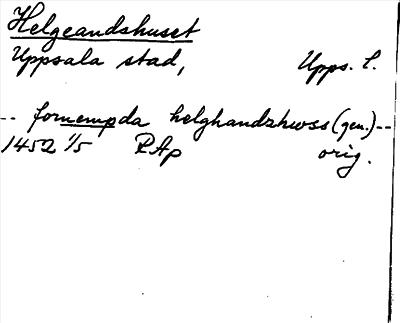 Helgeandshuset
Uppsala stad, Upps. l.
-- fornempda helghandzhwss (gen.) --
1452 1/5 RAp orig.